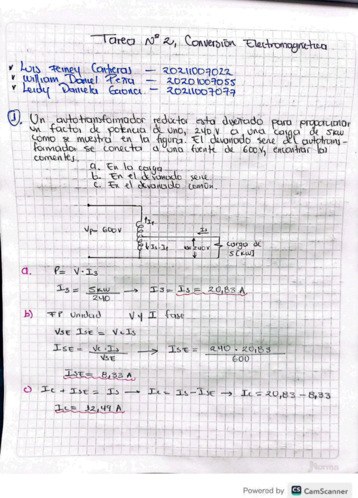 Tarea N° 2, Conversión Electromagnetica
Luis Ferney Conteras - 20211007022
William Daniel Peña - 20201007055
Leidy Daniela Gaona - 20211007077
1. Un autotransformador reductor esta diseñado para proporcionar
un factor de potencia de uno, 240 V a una carga de 5kW
como se muestra en la figura. El devanado serie del autotrans-
formador se conecta a una fuente de 600V, encontrar las
corrientes.
a. En la carga
b. En el devanado serie
c. En el devanado común.
Vp= 600V
Carga de
5 [KW]
a. P= V·Is
Is = 5KW/240 → Is = Is = 20,83 A
b) FP Unidad V y I fase
VSE ISE = Vc Is
ISE = Vc · Is / VSE → ISE = 240 · 20,83 / 600
ISE = 8,33 A
c) Ic + ISE = Is → Ic = Is - ISE → Ic = 20,83 - 8,33
Ic = 12,49 A
Norma
Powered by CS CamScanner